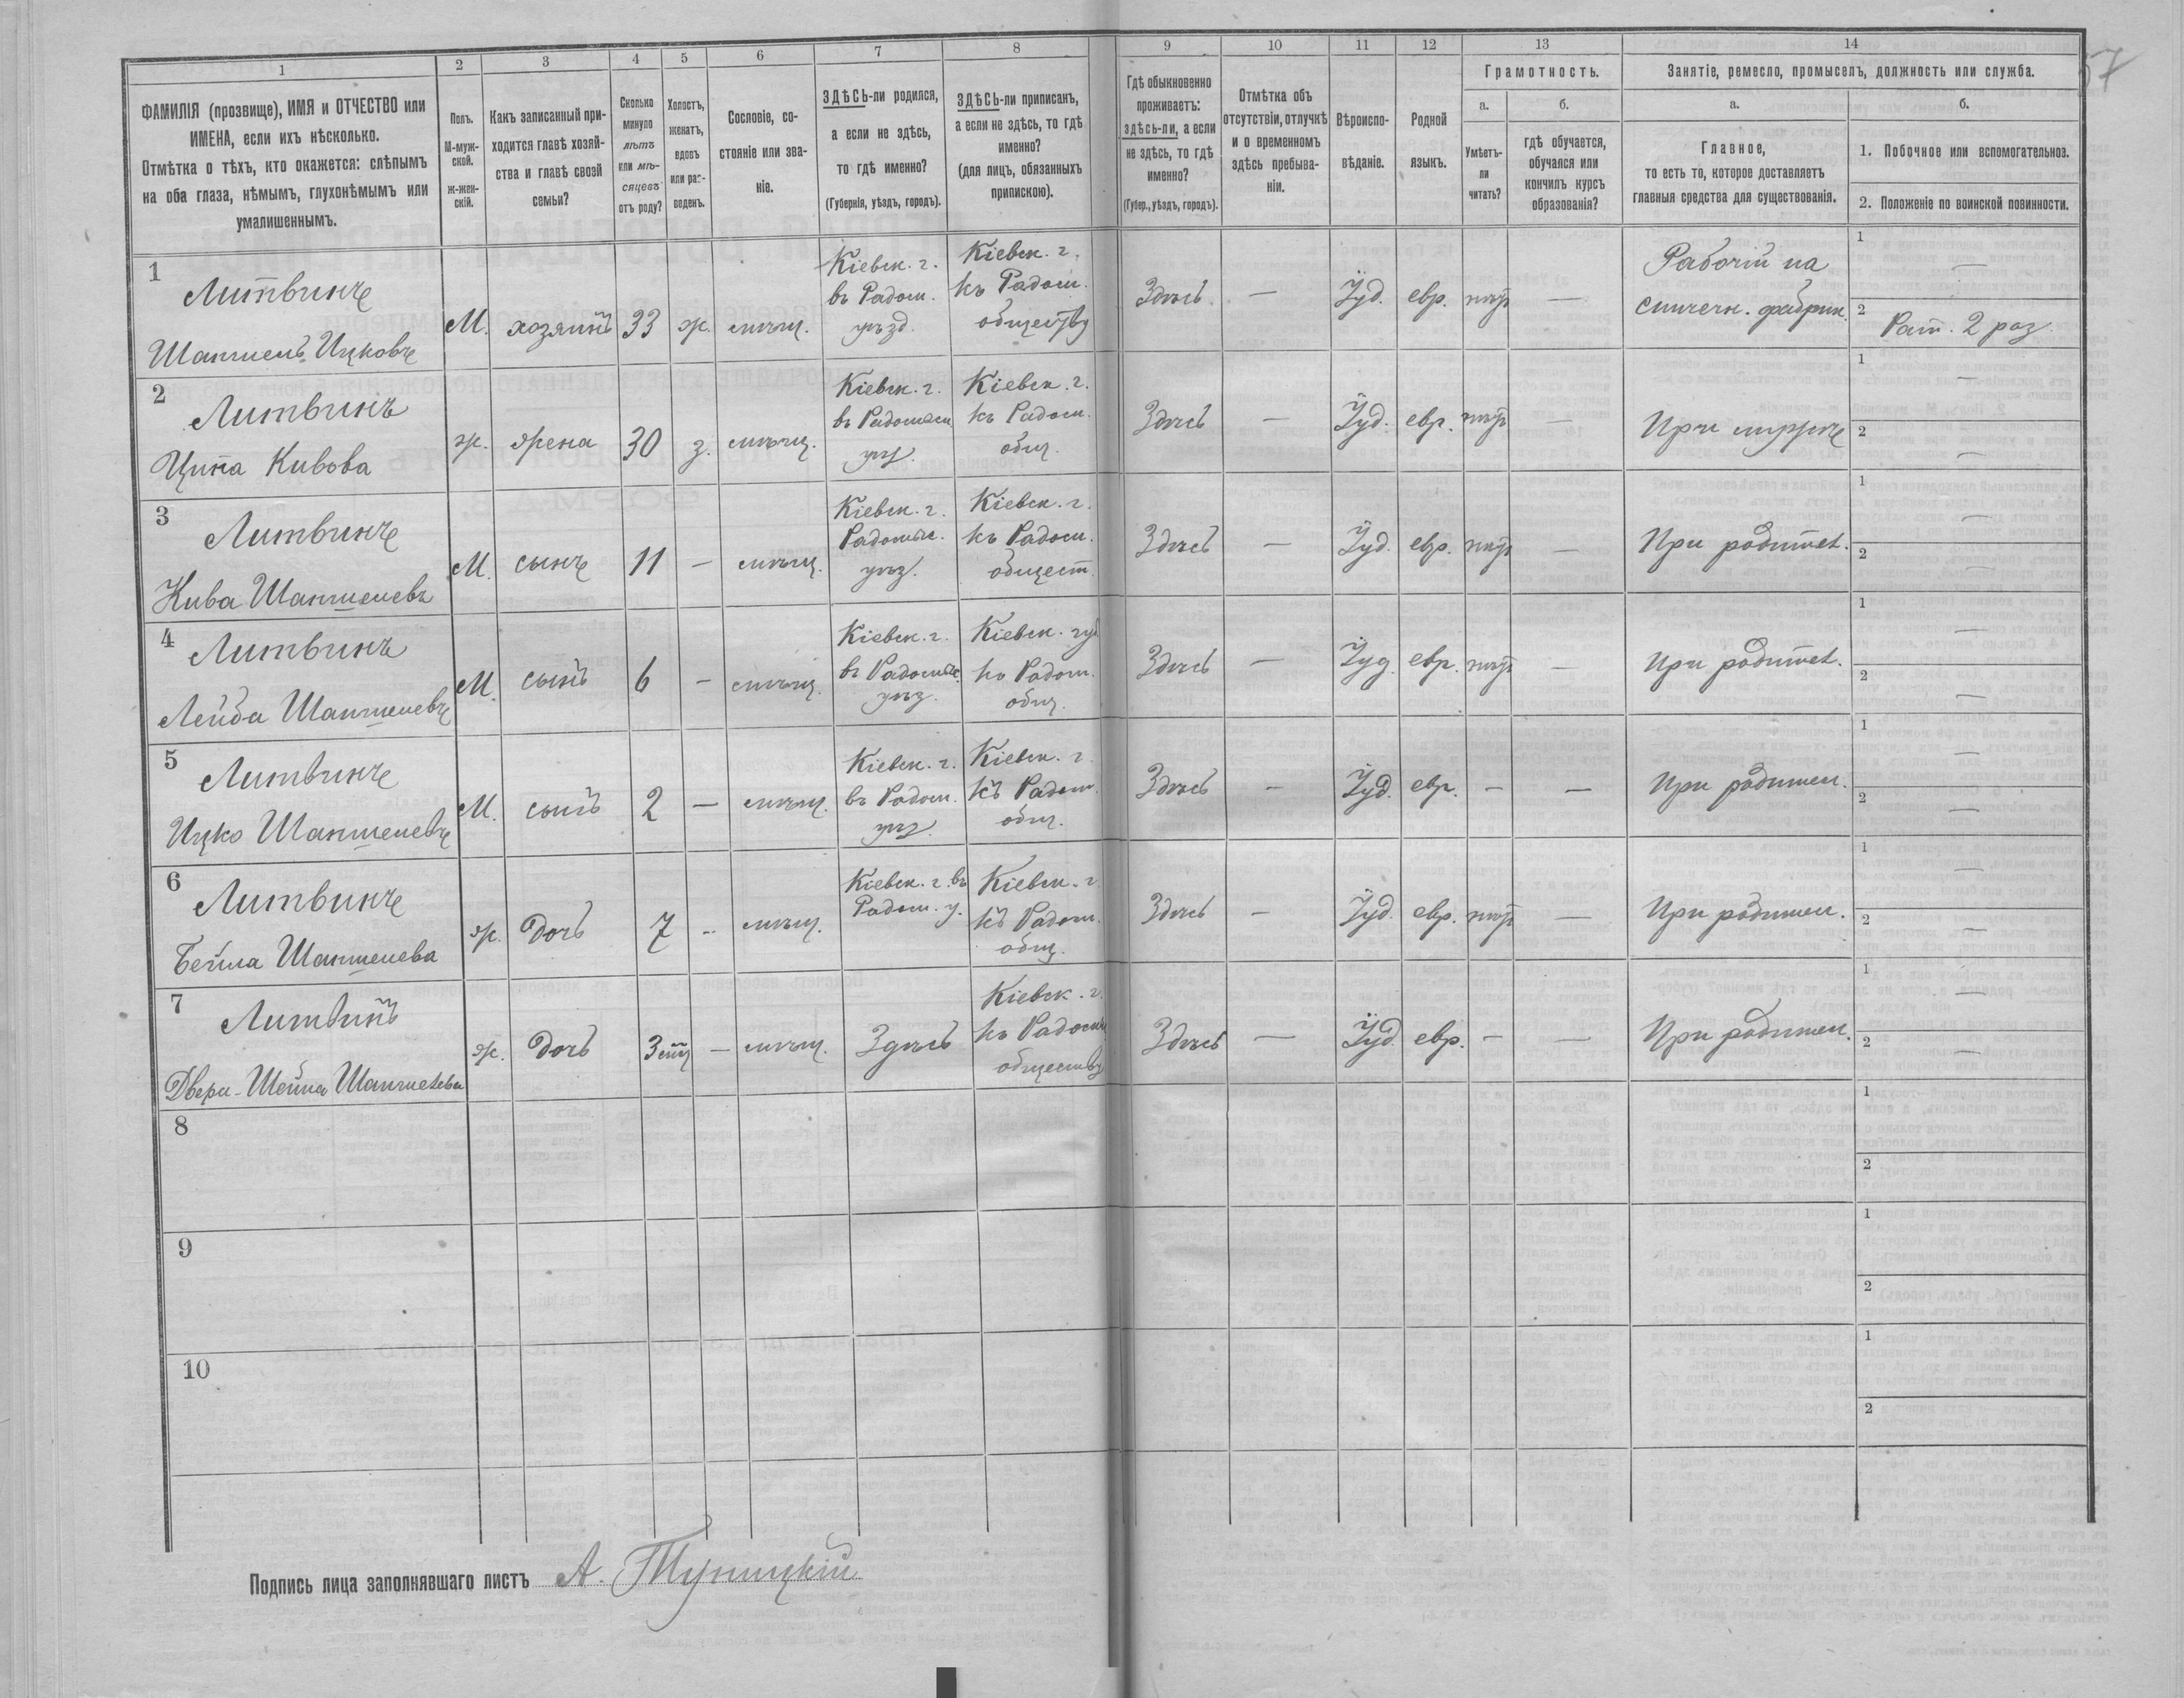 57
1 2 3 4 5 6 7 8 9 10 11 12 13 14
ФАМИЛІЯ (прозвище), ИМЯ и ОТЧЕСТВО или
ИМЕНА, если ихъ нѣсколько.
Отмѣтка о тѣхъ, кто окажется: слѣпымъ
на оба глаза, нѣмымъ, глухонѣмымъ или
умалишеннымъ.
Полъ.
М-муж-
ской.
Ж-жен-
скій.
Какъ записанный при-
ходится главѣ хозяй-
ства и главѣ своей
семьи?
Сколько
минуло
лѣтъ
или мѣ-
сяцевъ
отъ роду?
Холостъ,
женатъ,
вдовъ
или раз-
веденъ.
Сословіе, со-
стояніе или зва-
ніе.
ЗДѢСЬ-ли родился,
а если не здѣсь,
то гдѣ именно?
(Губернія, уѣздъ, городъ).
ЗДѢСЬ-ли приписанъ,
а если не здѣсь, то гдѣ
именно?
(для лицъ, обязанныхъ
припискою).
Гдѣ обыкновенно
проживаетъ:
здѣсь-ли, а если
не здѣсь, то гдѣ
именно?
(Губер., уѣздъ, городъ).
Отмѣтка объ
отсутствіи, отлучкѣ
и о временномъ
здѣсь пребыва-
ніи.
Вѣроиспо-
вѣданіе.
Родной
языкъ.
Грамотность.
а.
Умѣетъ-
ли
читать?
б.
гдѣ обучается,
обучался или
кончилъ курсъ
образованія?
Занятіе, ремесло, промыселъ, должность или служба.
а.
Главное,
то есть то, которое доставляетъ
главныя средства для существованія.
б.
1. Побочное или вспомогательное.
2. Положеніе по воинской повинности.
1
Литвинъ
Шапшель Ицковъ
М.
хозяинъ
33
ж.
мѣщ.
Кіевск. г.
въ Радом.
уѣзд.
Кіевск. г.
къ Радом.
обществу
Здѣсь
—
Іуд.
евр.
нѣтъ
—
Рабочій на
спичечн. фабрик.
1 —
2 Рат. 2 раз.
2
Литвинъ
Ципа Кивова
ж.
жена
30
з.
мѣщ.
Кіевск. г.
въ Радомысл
уѣз.
Кіевск. г.
къ Радом.
общ.
Здѣсь
—
Іуд.
евр.
нѣтъ
—
При мужѣ
1 —
2 —
3
Литвинъ
Кива Шапшелевъ
М.
сынъ
11
—
мѣщ.
Кіевск. г.
Радомыс.
уѣз.
Кіевск. г.
къ Радом.
общест.
Здѣсь
—
Іуд.
евр.
нѣтъ
—
При родител.
1 —
2 —
4
Литвинъ
Лейба Шапшелевъ
М.
сынъ
6
—
мѣщ.
Кіевск. г.
въ Радомыс.
уѣз.
Кіевск. губ
къ Радом.
общ.
Здѣсь
—
Іуд.
евр.
нѣтъ
—
При родител.
1 —
2 —
5
Литвинъ
Ицко Шапшелевъ
М.
сынъ
2
—
мѣщ.
Кіевск. г.
въ Радом.
уѣз.
Кіевск. г.
къ Радом.
общ.
Здѣсь
—
Іуд.
евр.
—
—
При родител.
1 —
2 —
6
Литвинъ
Бейла Шапшелева
ж.
дочь
7
—
мѣщ.
Кіевск. г. въ
Радом. у.
Кіевск. г.
къ Радом.
общ.
Здѣсь
—
Іуд.
евр.
нѣтъ
—
При родител.
1 —
2 —
7
Литвинъ
Двера-Шейна Шапшелева
ж.
дочь
3
—
мѣщ.
Здѣсь
Кіевск. г.
къ Радомы
обществу
Здѣсь
—
Іуд.
евр.
—
—
При родител.
1 —
2 —
8
1
2
9
1
2
10
1
2
Подпись лица заполнявшаго листъ А. Туницкій